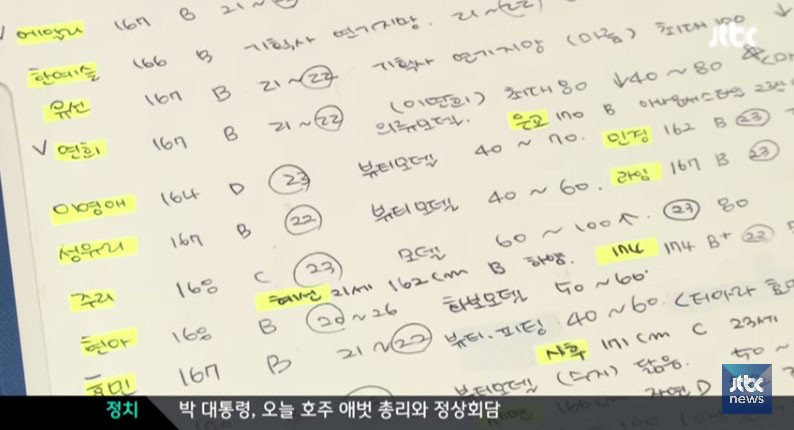 jtbc
에일리 167 B 21~
한예슬 166 B 기획사 연기지망. 21~22
유선 167 B 21~22 기획사 연기지망 최대 100
연희 167 B 21~22 (이연희) 최대 80 ↓40~80
의류모델. 은교 170 B
이영애 164 D 23 뷰티모델 40~70. 민경 162 B 23
성유리 167 B 22 뷰티모델 40~60. 라임 167 B 23
주리 168 C 23 모델 60~100↑. 23 80
혜선 21세 162cm B 하얌. 174 B+ 22
현아 168 B 20~26 화보모델 50~60.
효민 167 B 21~22 뷰티.피팅 40~60. (티아라 효
171cm C 23세
뷰티모델 (수지) 닮음. 50~
jtbc
news
정치 박 대통령, 오늘 호주 애벗 총리와 정상회담